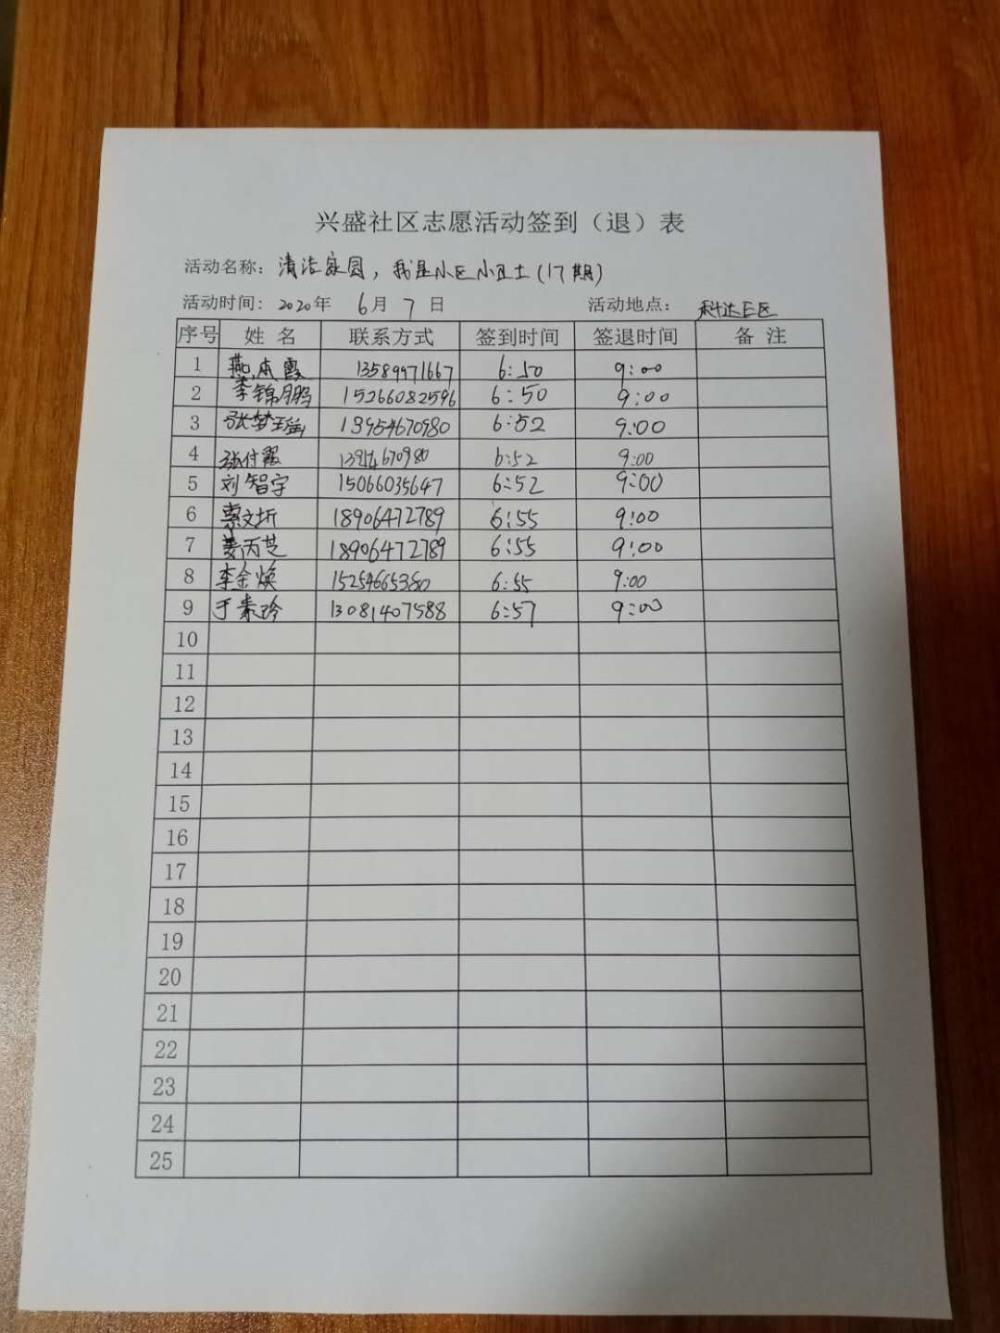 兴盛社区志愿活动签到（退）表
活动名称：清洁家园，我是小区小卫士(17期)
活动时间：2020年 6月 7日 活动地点：科达E区
序号 姓 名 联系方式 签到时间 签退时间 备 注
1 燕本霞 13589971667 6:50 9:00
2 李锦鹏 15266082596 6:50 9:00
3 张梦 13954670980 6:52 9:00
4 张付霞 6:52 9:00
5 刘智宇 15066035647 6:52 9:00
6 18906472789 6:55 9:00
7 姜丙芝 18906472789 6:55 9:00
8 李金焕 15254665380 6:55 9:00
9 于素玲 13081407588 6:57 9:00
10
11
12
13
14
15
16
17
18
19
20
21
22
23
24
25